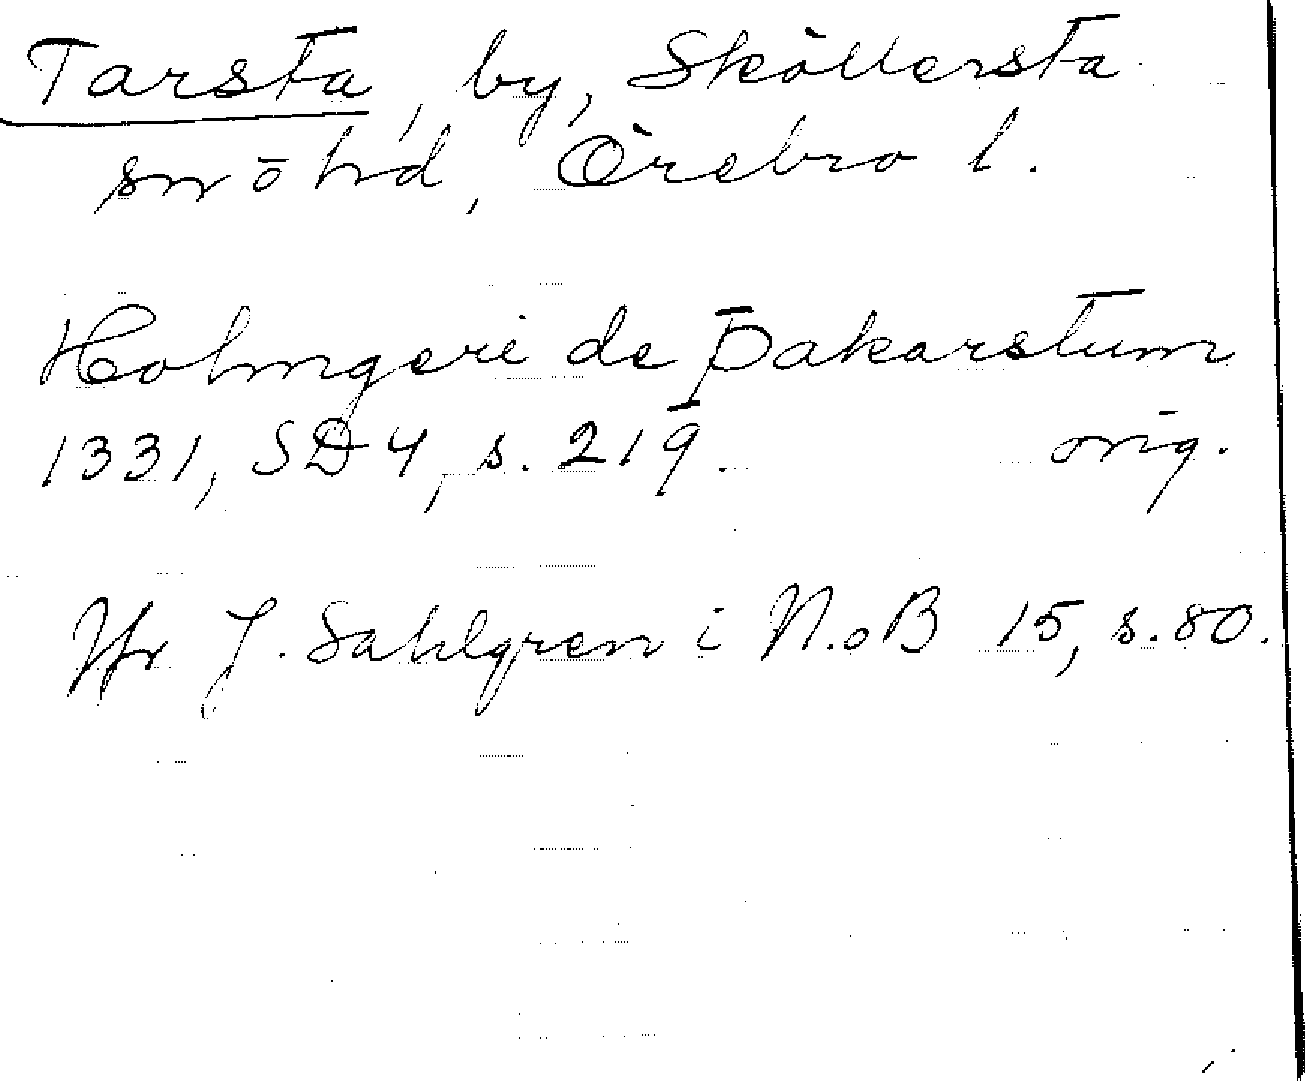 Tarsta, by, Sköllersta
sn ö hd, Örebro l.
Holmgeri de Þakarstum
1331, SD 4, s. 219. orig.
Jfr J. Sahlgren i N.o.B 15, s. 80.